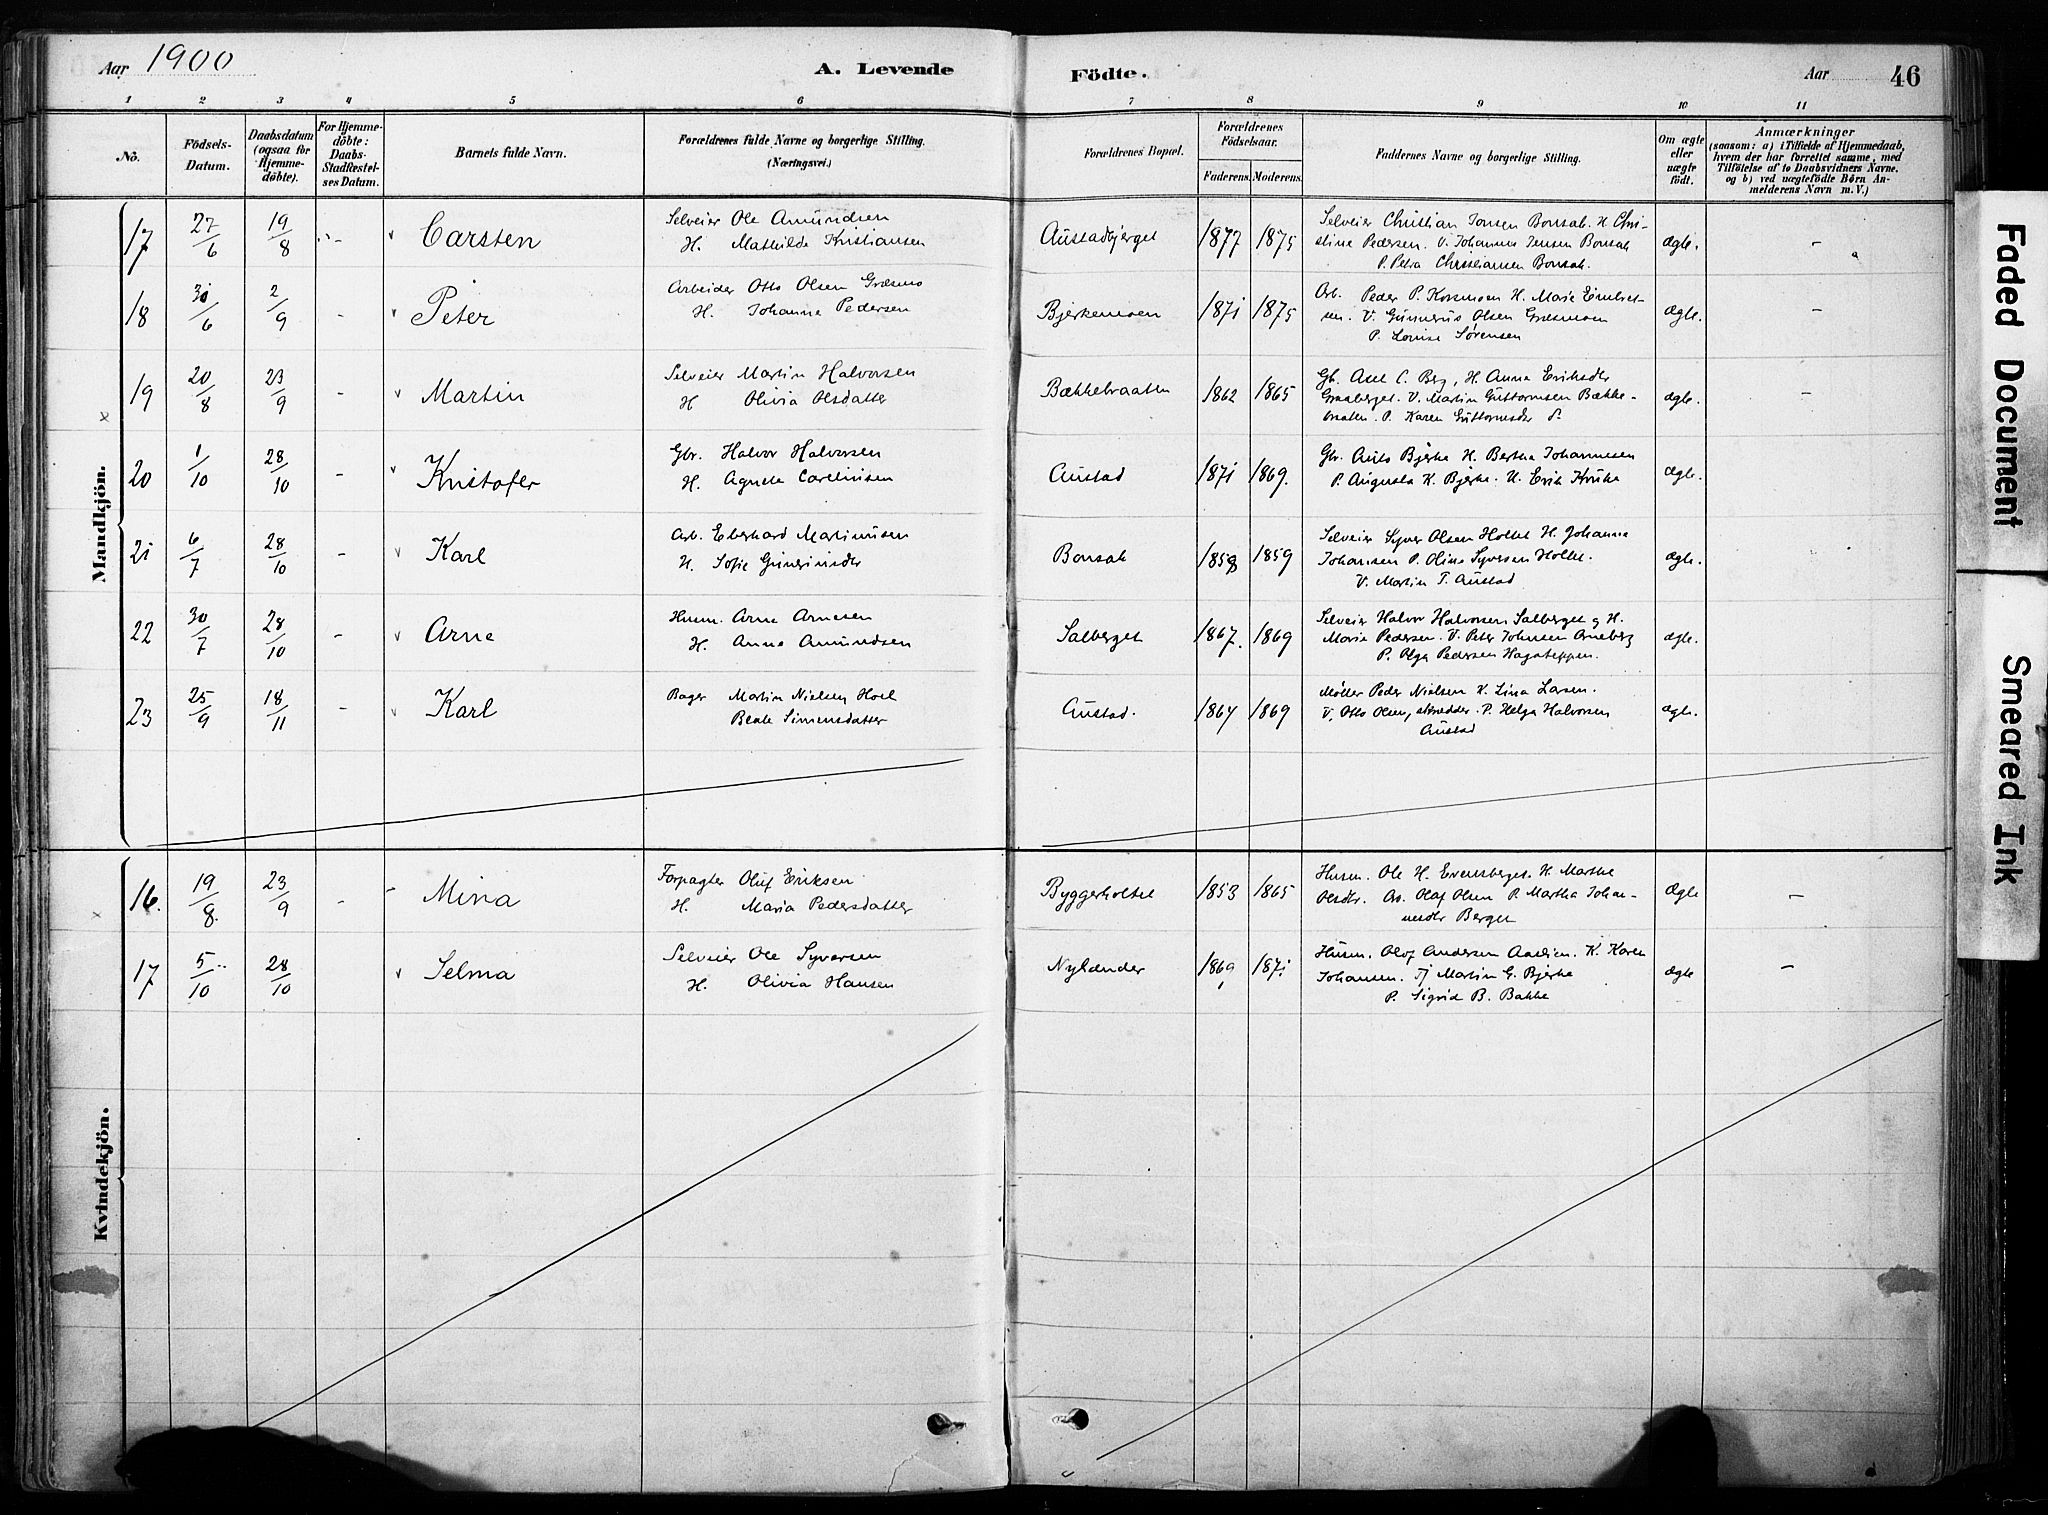 Aar 1900
A. Levende Födte.
Aar 46
1 2 3 4 5 6 7 8 9 10 11
No.
Födsels-Datum.
Daabsdatum (ogsaa for Hjemme-döbte).
For Hjemme-döbte: Daabs-Stadfæstel-ses Datum.
Barnets fulde Navn.
Forældrenes fulde Navne og borgerlige Stilling.
(Næringsvei.)
Forældrenes Bopæl.
Forældrenes Födselsaar.
Faderens. Moderens.
Faddernes Navne og borgerlige Stilling.
Om ægte eller uægte födt.
Anmærkninger
(saasom: a) i Tilfælde af Hjemmedaab,
hvem der har forrettet samme, med
Tilföielse af to Daabsvidners Navne,
og b) ved uægtefödte Börn An-
melderens Navn m.V.)
Mandkjön.
17 27/6 19/8 Carsten
Selveier Ole Amundsen
H. Mathilde Kristiansen
Austadbjerget 1877 1875
Selveier Christian Jonsen Bonsak. H. Chri-
stine Pedersen. V. Johannes Jensen Bonsak
P. Petra Christiansen Bonsak.
ægte. -
18 30/6 2/9 - Peter
Arbeider Otto Olsen Græsmo
H. Johanne Pedersen
Bjerkemoen 1871 1875
Arb. Peder P. Korsmoen H. Marie
V. Gunnerus Olsen Græsmoen
P. Louise Sørensen
ægte. -
19 20/8 23/9 - Martin
Selveier Martin Halvorsen
H Olivia Olsdatter
Bækkebraaten 1862 1865
Gb. Axel C. Berg, H. Anna Eriksdtr
Graaberget. V. Martin Guttormsen Bække-
braaten. P. Karen Guttormsdtr
ægte. -
20 1/10 28/10 - Kristofer
Gbr. Halvor Halvorsen
H. Agnete
Austad 1871 1869.
Gbr. Bjerke H. Bertha Johannesen
P. Augusta K. Bjerke. U. Erik Kruke
ægte.
21 6/7 28/10 - Karl
Arb. Eberhard Martinusen
H. Sofie
Bonsak 1859 1859
Selveier Syver Olsen Holtet H. Johanne
Johansen P. Oline Syversen Holtet.
V. Martin T. Austad
ægte.
22 30/7 28/10 - Arne
Husm. Arne Arnesen
H. Anne Amundsen
Salberget 1867. 1869
Selveier Halvor Halvorsen Salberget og H.
Marie Pedersen. V. Peter Johnsen Arneberg
P. Olga Pedersen Hagateppen.
ægte.
23 25/9 18/11 - Karl
Bager Martin Nielsen Hoel
Beate Simensdatter
Austad. 1867 1869
Møller Peder Nielsen H. Lina Larsen.
V. Otto Olsen, skredder. P. Helga Halvorsen
Austad
ægte.
Kvindekjön.
16. 19/8. 23/9 - Mina
Forpagter Oluf Eriksen
H. Maria Pedersdatter
Byggerholtet 1853 1865
Husm. Ole H. Evensberget. H. Marthe
Olsdtr. Olaf Olsen P. Martha Johan-
nesdtr Berget
Ægte -
17 5/10 28/10 Selma
Selveier Ole Syversen
H. Olivia Hansen
Nylænder 1869 1871
Husm. Olof Andersen H. Karen
Johansen. Tj Martin G. Bjerke
P. Sigrid B. Bakke
ægte -
Faded Document
Smeared Ink